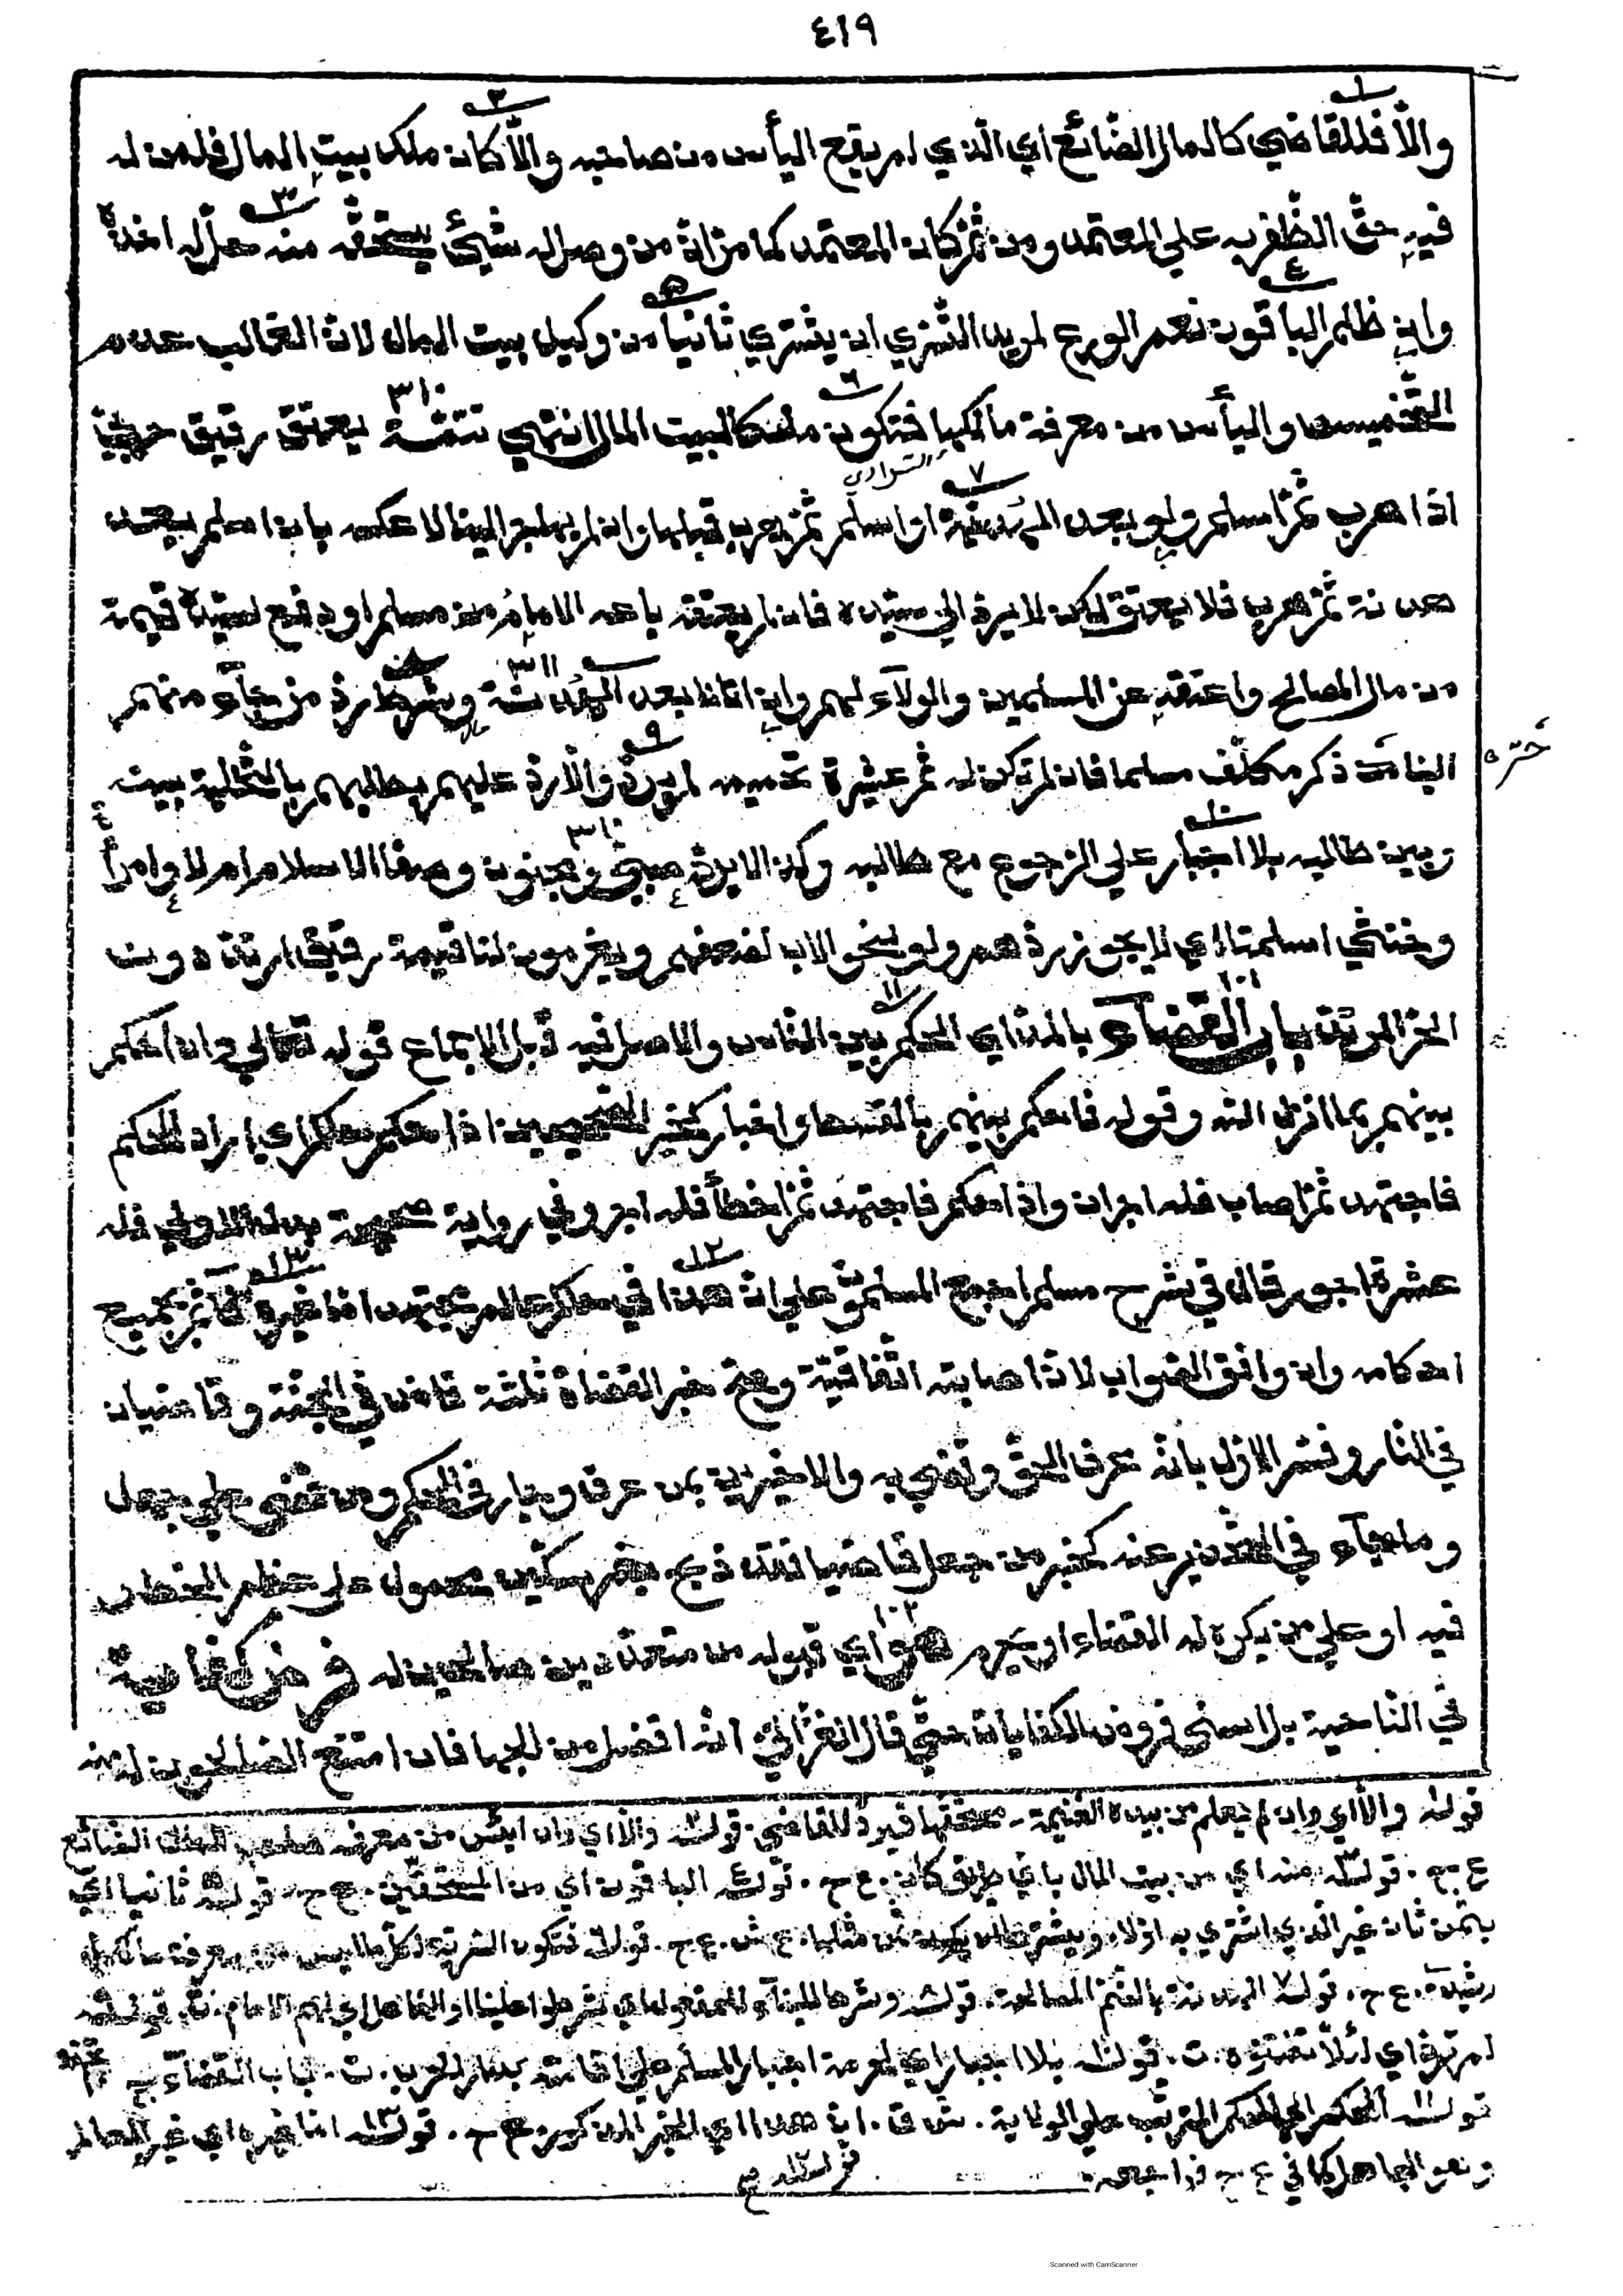 ٤١٩
والّا فللقاضي كالمال الضّائع اي الّذي لم يقع اليأس من صاحبه والّا كان ملك بيت المال فلمن له
فيه حقّ الظّفر به علي المعتمد ومن ثمّ كان المعتمد كما مرّ انّ من وصل له شيئ يستحقّه منه حلّ له اخذه
وان ظلم الباقون نعم الورع لمريد التّسرّي ان يشتري ثانيا من وكيل بيت المال لانّ الغالب عدم
التّخميس واليأس من معرفة مالكها فتكون ملكا لبيت المال انتهي تتمّة يعتق رقيق حربيّ
اذا هرب ثمّ اسلم ولو بعد الهدنة او اسلم ثمّ هرب قبلها وان لم يهاجر الينا لا عكسه بان اسلم بعد
هدنة ثمّ هرب فلا يعتق لكن لا يردّ الي سيّده فان لم يعتقه باعه الامام من مسلم او دفع لسيّده قيمته
من مال المصالح واعتقه عن المسلمين والولآء لهم وان اتانا بعد الهدنة وشرط ردّ من جآء منهم
الينا ذكر مكلّف مسلما فان لم تكن له ثمّ عشيرة تحميه لم يردّ والّا ردّ عليهم بطلبهم بالتّخلية بينه
حرّ
وبين طالبه بلا اجبار علي الرّجوع مع طالبه وكذا لا يردّ صبيّ ومجنون وصفا الاسلام ام لا وامرأة
وخنثي اسلمتا اي لا يجوز ردّهم ولو لنحو الاب لضعفهم ويغرمون لنا قيمة رقيق ارتدّ دون
الحرّ المرتدّ باب القضآء بالمدّ اي الحكم بين النّاس والاصل فيه قبل الاجماع قوله تعالي وان احكم
بينهم بما انزل الله وقوله فاحكم بينهم بالقسط واخبار كخبر الصّحيحين اذا حكم حاكم اي اراد الحكم
فاجتهد ثمّ اصاب فله اجران واذا حكم فاجتهد ثمّ اخطأ فله اجر وفي رواية صحيحة بدل الاولي فله
عشرة اجور قال في شرح مسلم اجمع المسلمون علي انّ هذا في حاكم عالم مجتهد امّا غيره فآثم بجميع
احكامه وان وافق الصّواب لانّ اصابته اتّفاقيّة وصحّ خبر القضاة ثلثة قاض في الجنّة وقاضيان
في النّار وفسّر الاوّل بانّه عرف الحقّ وقضي به والاخيرين بمن عرف وجار في الحكم ومن قضي علي جهل
وما جآء في التّحذير عنه كخبر من جعل قاضيا فقد ذبح بغير سكّين محمول علي عظم الخطر
فيه او علي من يكره له القضاء او يحرم هو اي قبوله من متعدّدين صالحين له فرض كفاية
في النّاحية بل اسني فروض الكفايات حتّي قال الغزّاليّ انّه افضل من الجهاد فان امتنع الصّالحون له منه
قوله والّا اي وان لم يعلم من بيده الغنيمة مستحقّها فيردّ للقاضي. قوله والّا اي وان ايس من معرفة صاحب المال الضّائع
ع ح. قوله منه اي من بيت المال باي طريق كان. ع ح. قوله الباقون اي من المستحقّين. ع ح. قوله ثانيا اي
بثمن ثان غير الّذي اشتري به اوّلا ع ش. ع ح. قوله فتكون
رشيديّ. ع ح. قوله الهدنة بالضّمّ المصالحة. قوله وشرط بالبنآء للمفعول اي شرطوا علينا او للفاعل اي لهم الامام. ت. قوله
لم يردّ اي لئلّا يفتنوه. ت. قوله بلا اجبار اي لحرمة اجبار المسلم علي اقامته بدار الحرب. ت. باب القضآء
قوله الحكم اي الحكم المترتّب علي الولاية. ش ق. انّ هذا اي الخبر المذكور. ع ح. قوله امّا غيره اي غير العالم
وهو الجاهل كما في ع ح
Scanned with CamScanner